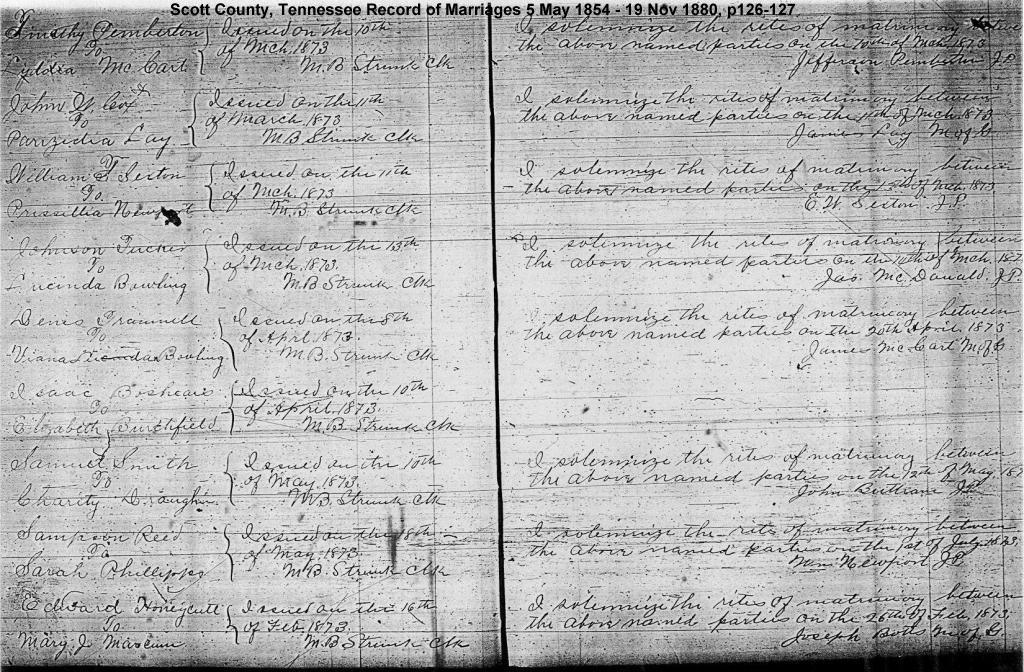 Scott County, Tennessee Record of Marriages 5 May 1854 - 19 Nov 1880, p126-127
Timothy Pemberton
To
Lyddia McCart
Issued on the 10th
of Mch. 1873
M.B Strunk Clk
I solemnize the rites of matrimony
the above named parties on the 10th of Mch. 1873
Jefferson Pemberton J.P.
John W Cox
To
Parizedia Lay
Issued on the 11th
of March 1873
M.B Strunk Clk
I solemnize the rites of matrimony between
the above named parties on the of Mch. 1873
James Lay M of G
William T Sexton
To
Priscillia Newport
Issued on the 11th
of Mch. 1873
M.B. Strunk Clk
I solemnize the rites of matrimony between
the above named parties on the of Mch. 1873
E.W Sexton J.P.
Johnson Tucker
To
Lucinda Bowling
Issued on the 13th
of Mch. 1873.
M.B Strunk Clk
I solemnize the rites of matrimony between
the above named parties on the 14th of Mch. 187
Jas. McDonald J.P.
Denis Trammell
To
Viana Bowling
Issued on the 8th
of April 1873.
M.B. Strunk Clk
I solemnize the rites of matrimony between
the above named parties on the 20th April 1873
James McCart M of G
Isaac Bosheais
To
Elizabeth Burchfield
Issued on the 10th
of April 1873.
M.B. Strunk Clk
Samuel Smith
To
Charity Draughn
Issued on the 10th
of May 1873.
M.B. Strunk Clk
I solemnize the rites of matrimony between
the above named parties on the 12th of May 187
John Buttram J.P.
Sampson Reed
To
Sarah Phillipps
Issued on the 18th
of May 1873.
M.B Strunk Clk
I solemnize the rits of matrimony between
the above named parties on the 1st of July 1873,
Wm Newport J.P.
Edward Honeycutt
To
Mary J Marcum
Issued on the 16th
of Feb. 1873.
M.B Strunk Clk
I solemnize the rites of matrimony between
the above named parties on the 26th of Feb, 1873
Joseph Botts M of G.